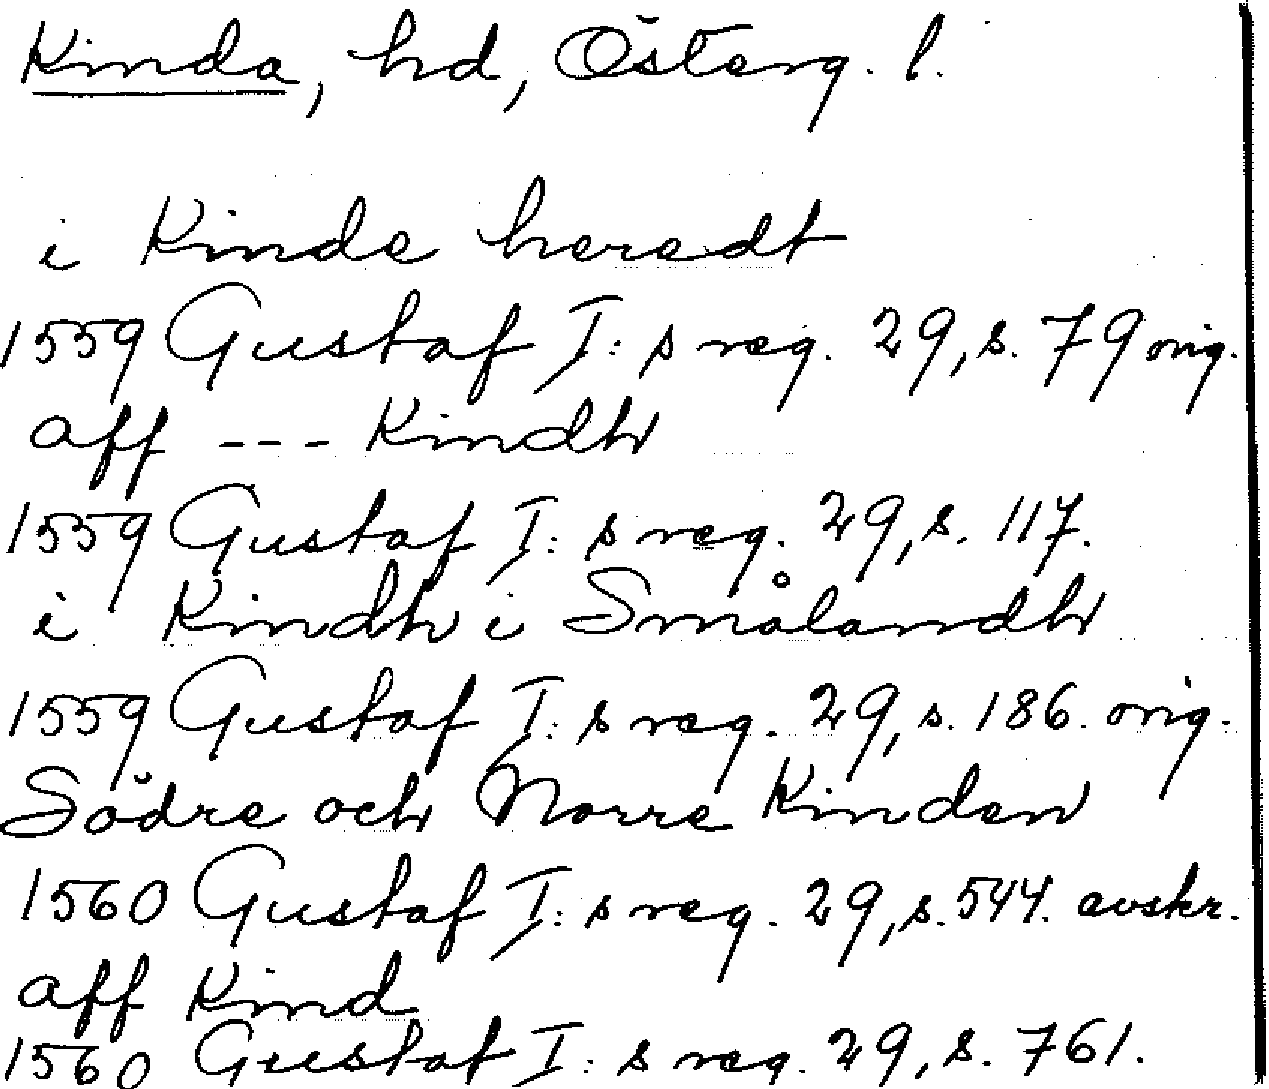 Kinda, hd, Österg. l.
i Kinde heredt
1559 Gustaf I:s reg. 29, s. 79 orig.
aff --- Kindh
1559 Gustaf I:s reg. 29, s. 117.
i Kindh i Smålandh
1559 Gustaf I:s reg. 29, s. 186. orig.
Södre och Norre Kinden
1560 Gustaf I:s reg. 29, s. 544. avskr.
aff Kind
1560 Gustaf I:s reg. 29, s. 761.